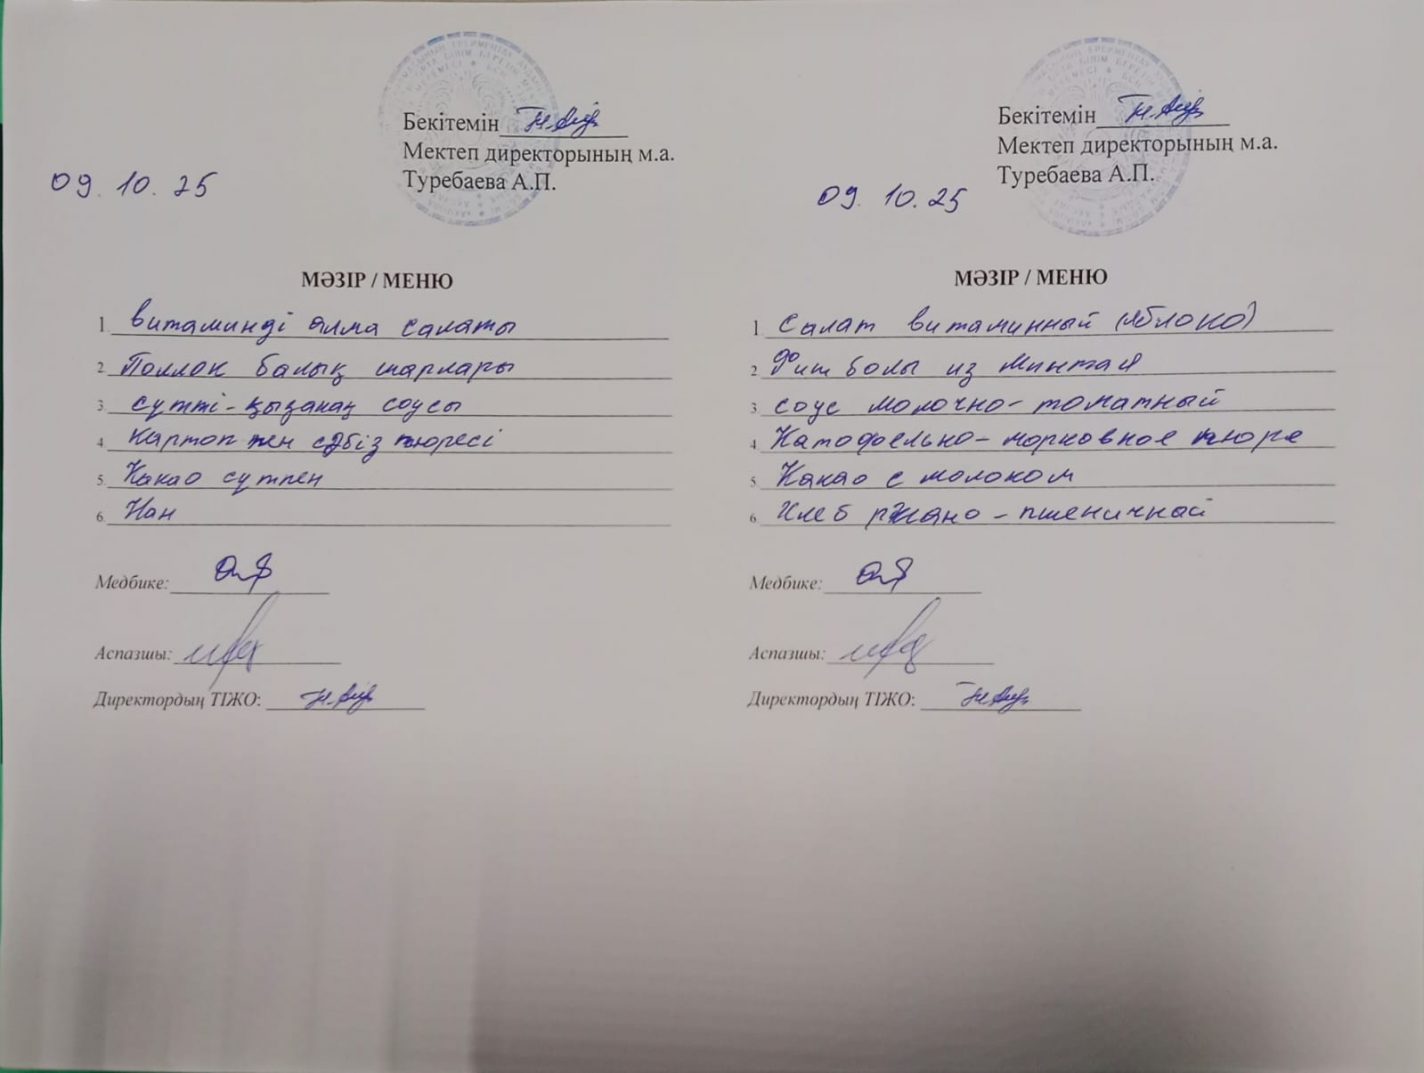 Бекітемін
Мектеп директорының м.а.
Туребаева А.П.
09. 10. 25
МӘЗІР / МЕНЮ
1 витаминді алма салаты
2. Поллок балық шарлары
3. сүтті-қызанақ соусы
4. Картоп пен сәбіз пюресі
5. Какао сүтпен
6. Нан
Медбике:
Аспазшы:
Директордың ТІЖО:
Бекітемін
Мектеп директорының м.а.
Туребаева А.П.
09. 10. 25
МӘЗІР / МЕНЮ
1 Салат витаминный (яблоко)
2 Фишболы из минтая
3 соус молочно-томатный
4 Катофоельно-морковное пюре
5 Какао с молоком
6. Хлеб ржано-пшеничный
Медбике:
Аспазшы:
Директордың ТІЖО: